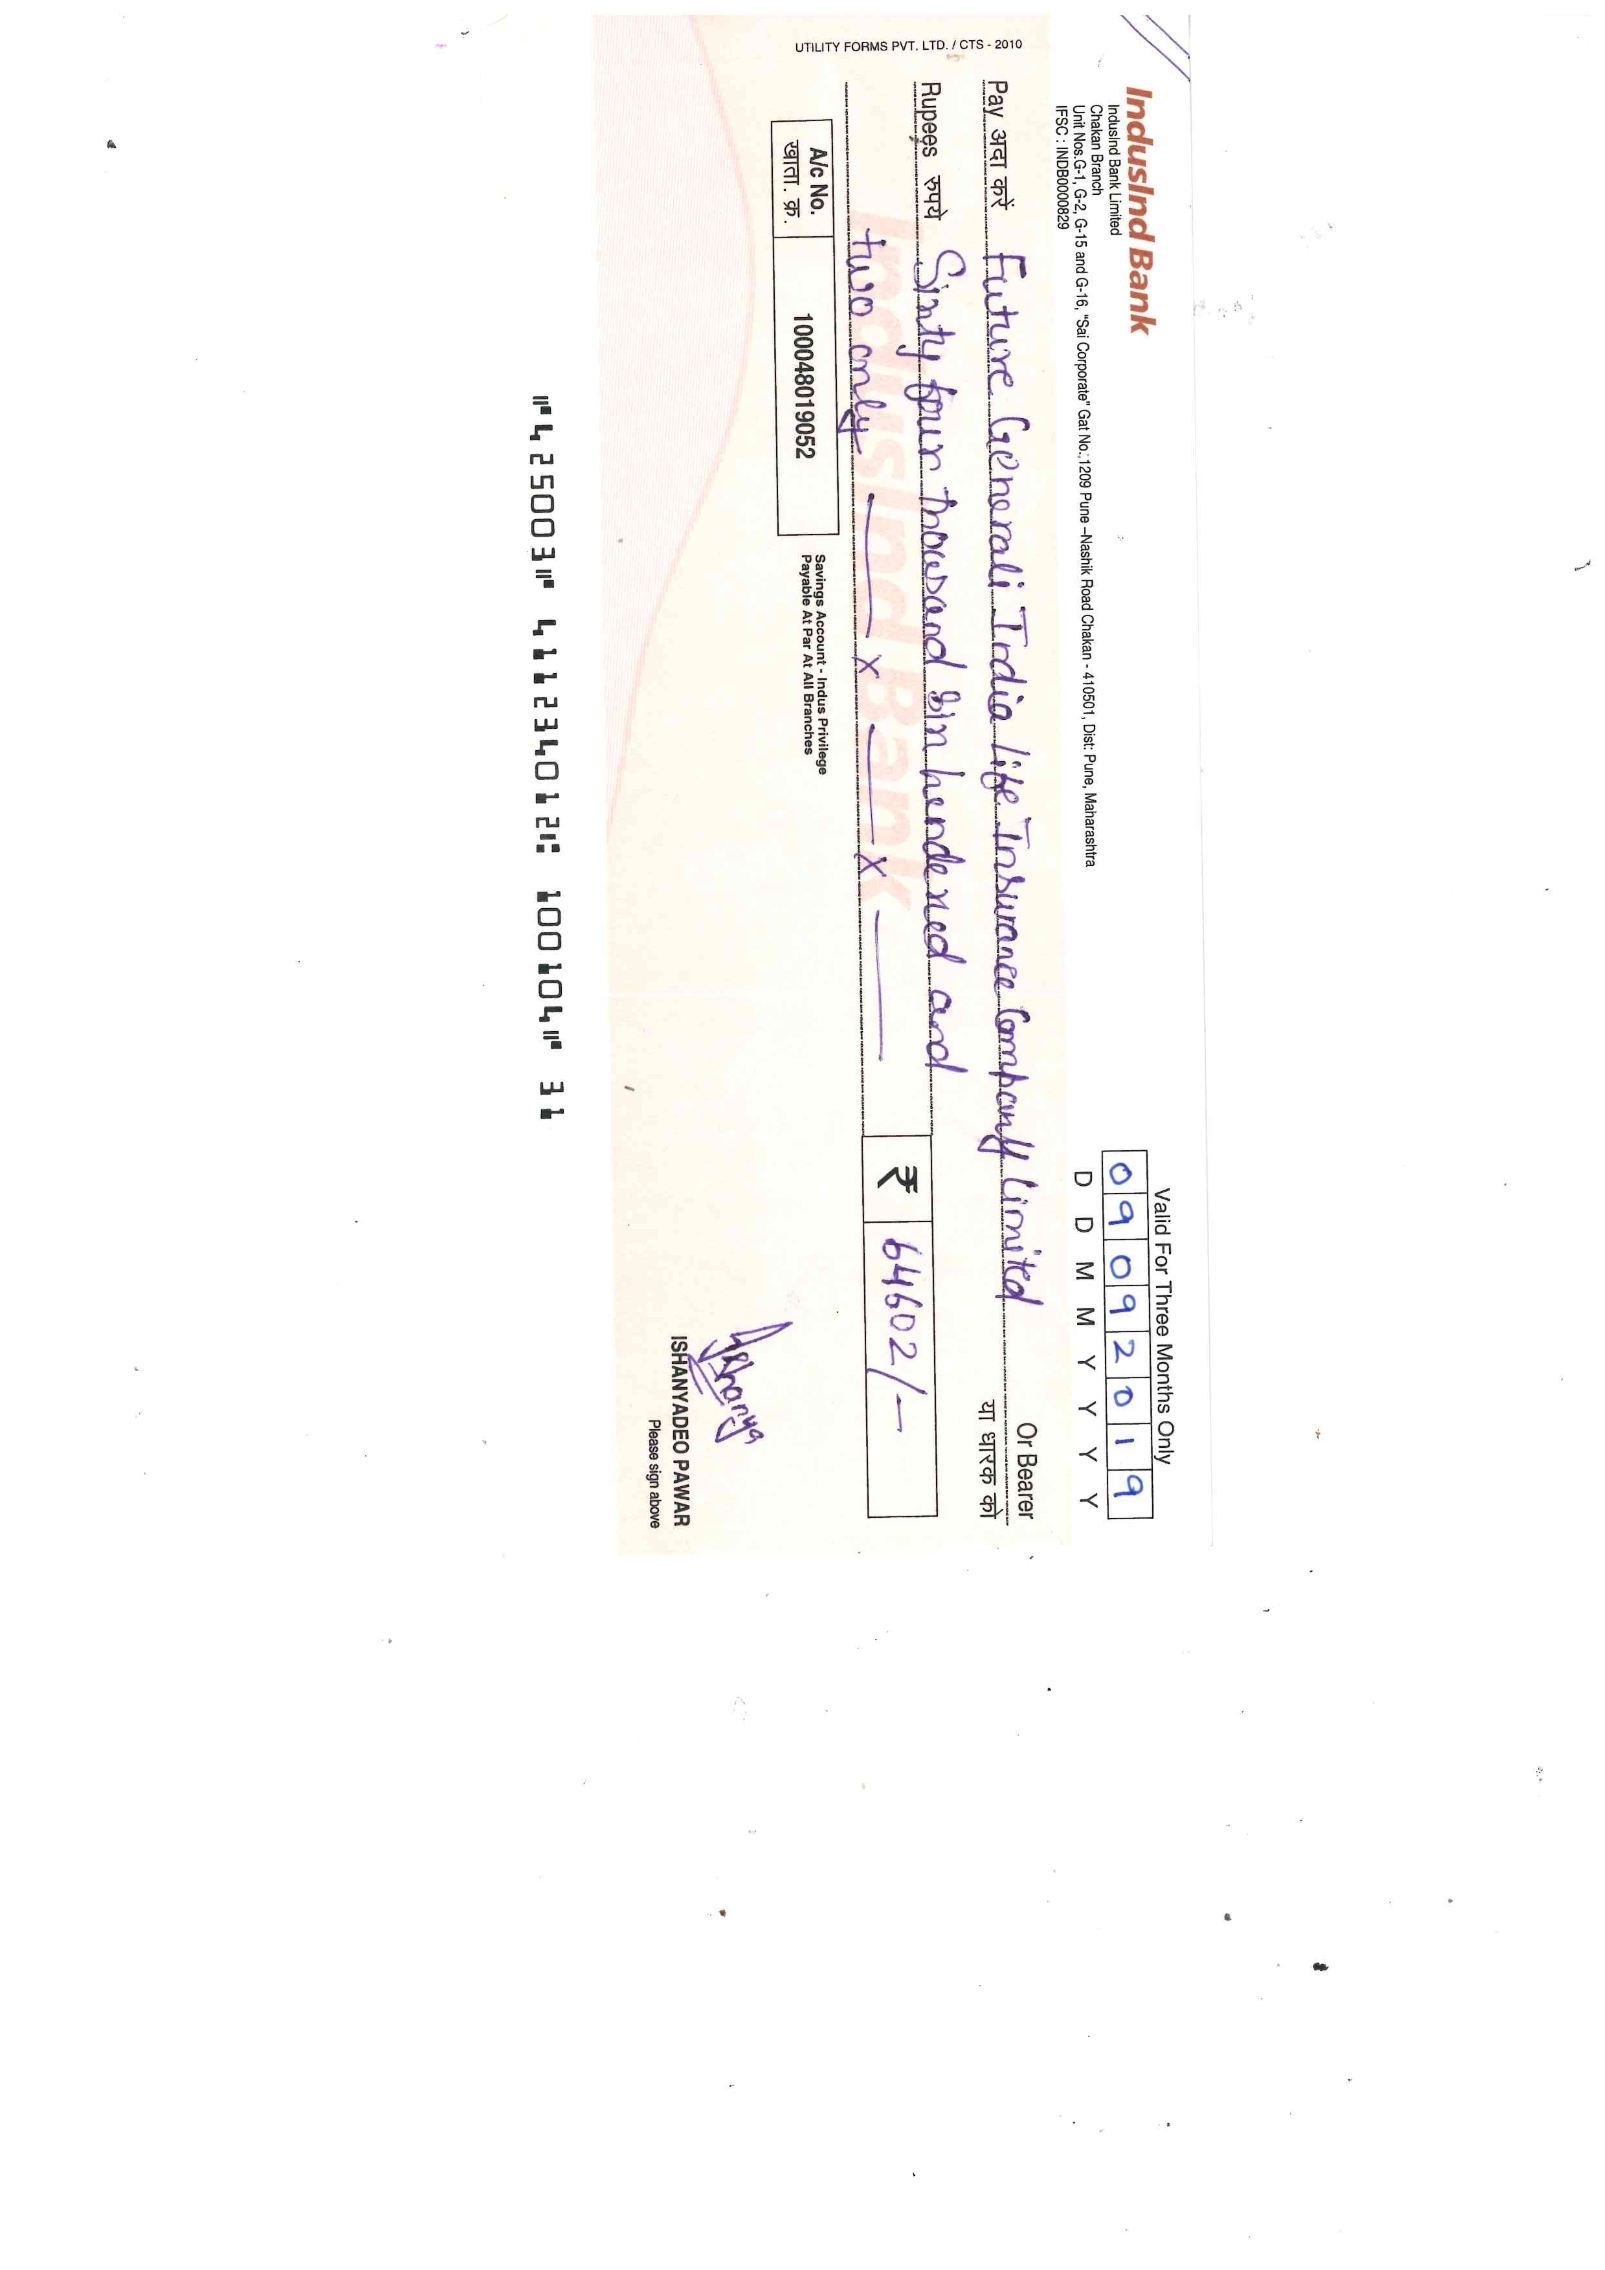 IndusInd Bank
IndusInd Bank Limited
Chakan Branch
Unit Nos.G-1, G-2, G-15 and G-16, "Sai Corporate" Gat No.:1209 Pune –Nashik Road Chakan - 410501, Dist: Pune, Maharashtra
IFSC : INDB0000829
Valid For Three Months Only
0 9 0 9 2 0 1 9
D D M M Y Y Y Y
Pay अदा करें Future Generali India Life Insurance Company Limited Or Bearer
या धारक को
Rupees रुपये Sixty four thousand six hundered and
two only — x — x —
₹ 64602/-
A/c No.
खाता. क्र.
100048019052
Savings Account - Indus Privilege
Payable At Par At All Branches
IndusInd Bank
Ishanya
ISHANYADEO PAWAR
Please sign above
UTILITY FORMS PVT. LTD. / CTS - 2010
⑈425003⑈ 411234012⑆ 100104⑈ 31